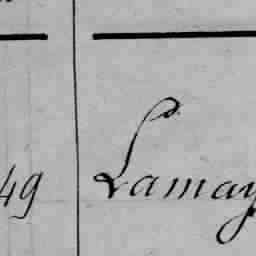 49 Lamay